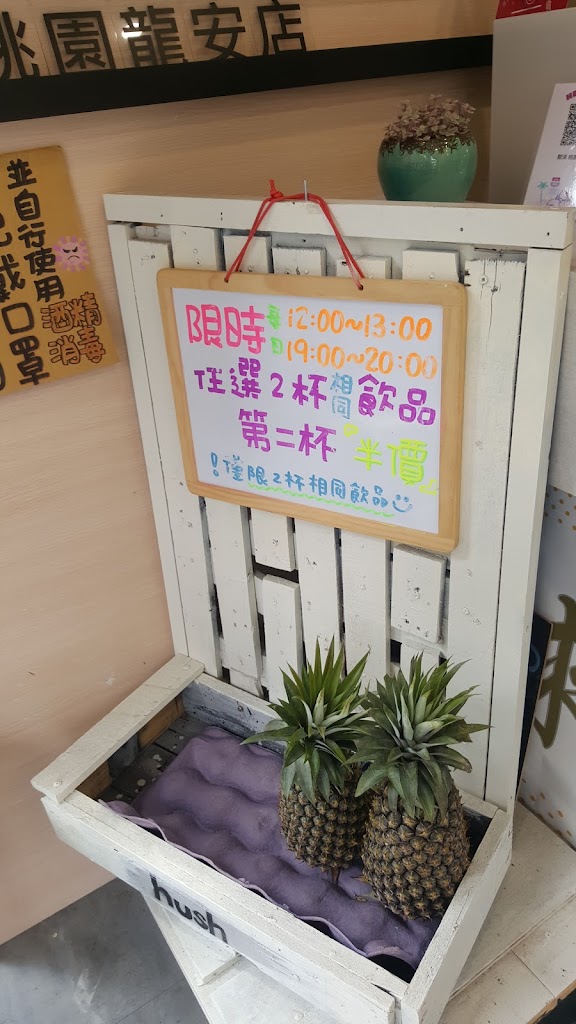 桃園龍安店
並自行使用
酒精
消毒
戴口罩
限時 每日 12:00~13:00
19:00~20:00
任選2杯相同飲品
第二杯 半價
!僅限2杯相同飲品
hush